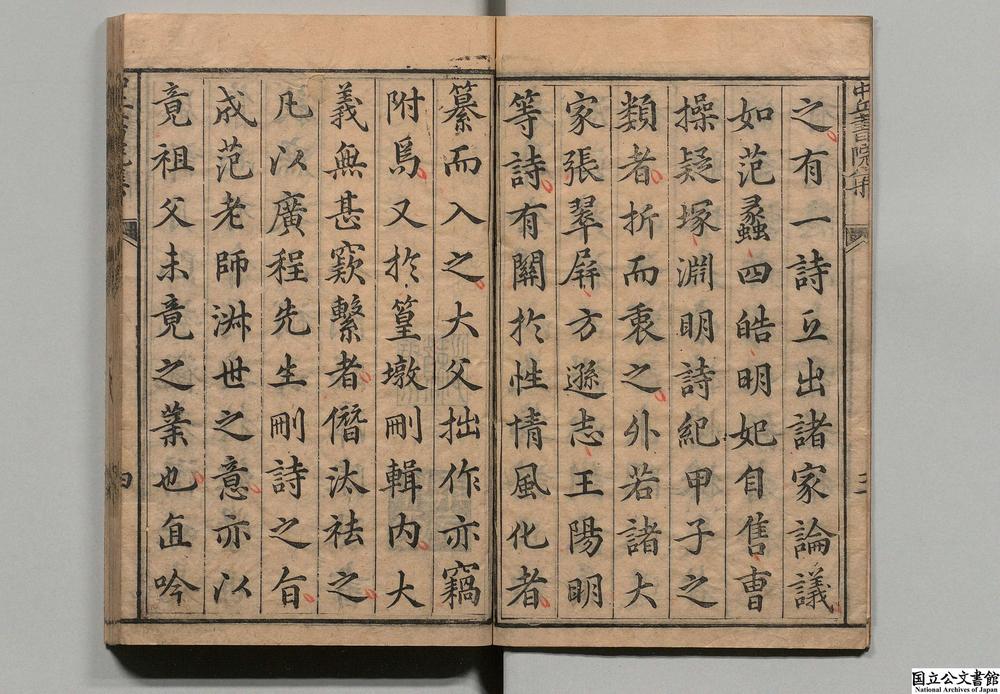 之有一詩互出諸家論議
如范蠡四皓明妃自售曹
操疑塚淵明詩紀甲子之
類者折而衷之外若諸大
家張翠屏方遜志王陽明
等詩有關於性情風化者
纂而入之大父拙作亦竊
附焉又於篁墩刪輯内大
義無甚窾繫者僭汰袪之
凡以廣程先生刪詩之旨
成范老師淑世之意亦以
竟祖父未竟之業也直吟
三
四
国立公文書館
National Archives of Japan